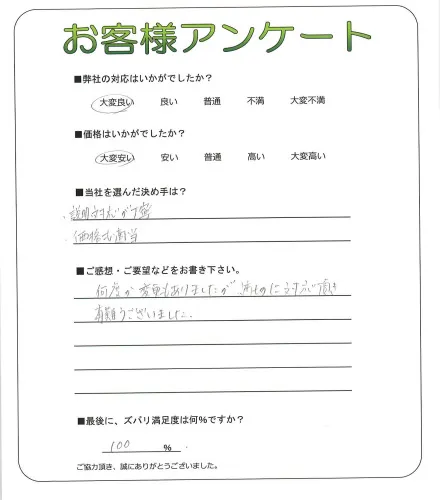 お客様アンケート
■弊社の対応はいかがでしたか?
大変良い 良い 普通 不満 大変不満
■価格はいかがでしたか?
大変安い 安い 普通 高い 大変高い
■当社を選んだ決め手は?
・説明対応が丁寧
・価格も適当
■ご感想・ご要望などをお書き下さい。
何度か変更もありましたが 対応頂き
有難うございました.
■最後に、ズバリ満足度は何%ですか?
100 %
ご協力頂き、誠にありがとうございました。